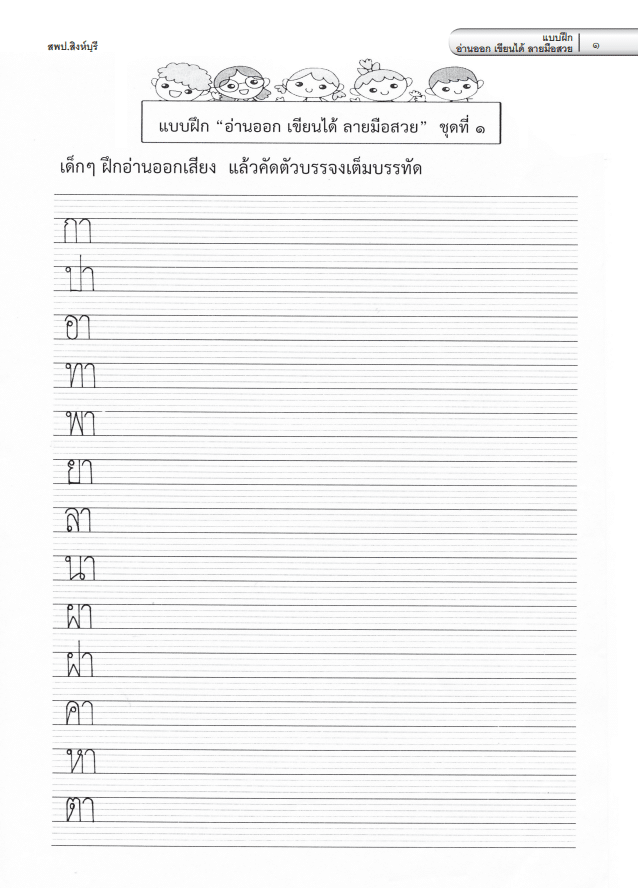 สพป.สิงห์บุรี
แบบฝึก
อ่านออก เขียนได้ ลายมือสวย ๑
แบบฝึก “อ่านออก เขียนได้ ลายมือสวย” ชุดที่ ๑
เด็กๆ ฝึกอ่านออกเสียง แล้วคัดตัวบรรจงเต็มบรรทัด
กา
ปา
อา
ทา
พา
ยา
ลา
นา
ผา
ฝา
คา
หา
ตา